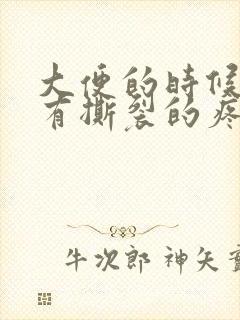 大便的時候
有撕裂的疼
牛次郎 神矢